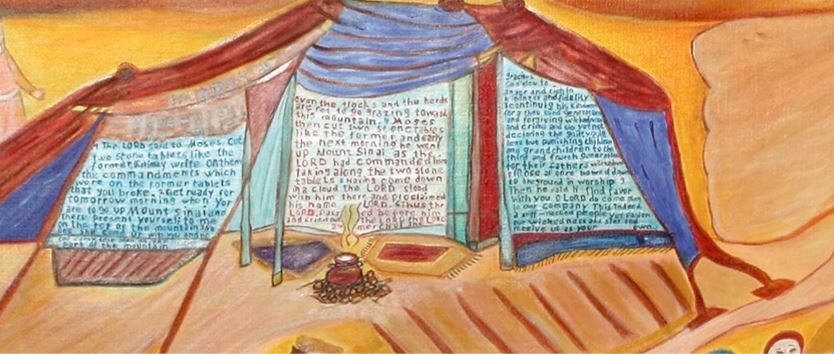 The LORD said to Moses. Cut
two stone tablets like the
former, that I may write on them
the commandments which
were on the former tablets
that you broke. 2 Get ready for
tomorrow morning when you
are to go up Mount Sinai and
there present yourself to me
on the top of the mountain. 3 No
one shall come up with you
part of the mountain
even the flocks and the herds
are not to go grazing toward
this mountain. 4 Moses
then cut two stone tables
like the former and early
the next morning he went
up Mount Sinai as the
LORD had commanded him
taking along the two stone
tablets 5 having come down
in a cloud the LORD stood
with him there and proclaimed
his name LORD. 6 thus the
LORD passed before him
and cried out the LORD the LORD
a merciful
gracious
anger and rich in
kindness and fidelity
7 continuing his kindness
for a thousand generations
and forgiving wickedness
and crime and sin yet not
declaring the guilty guilt
less but punishing children
and grandchildren to the
third and fourth generation
for their fathers wickedness
Moses at once bowed down
to the ground in worship 9
then he said If I find favor
with you O LORD do come along
in our company. This indeed
a stiff-necked people yet pardon
our wickedness and sins and
receive us as your own